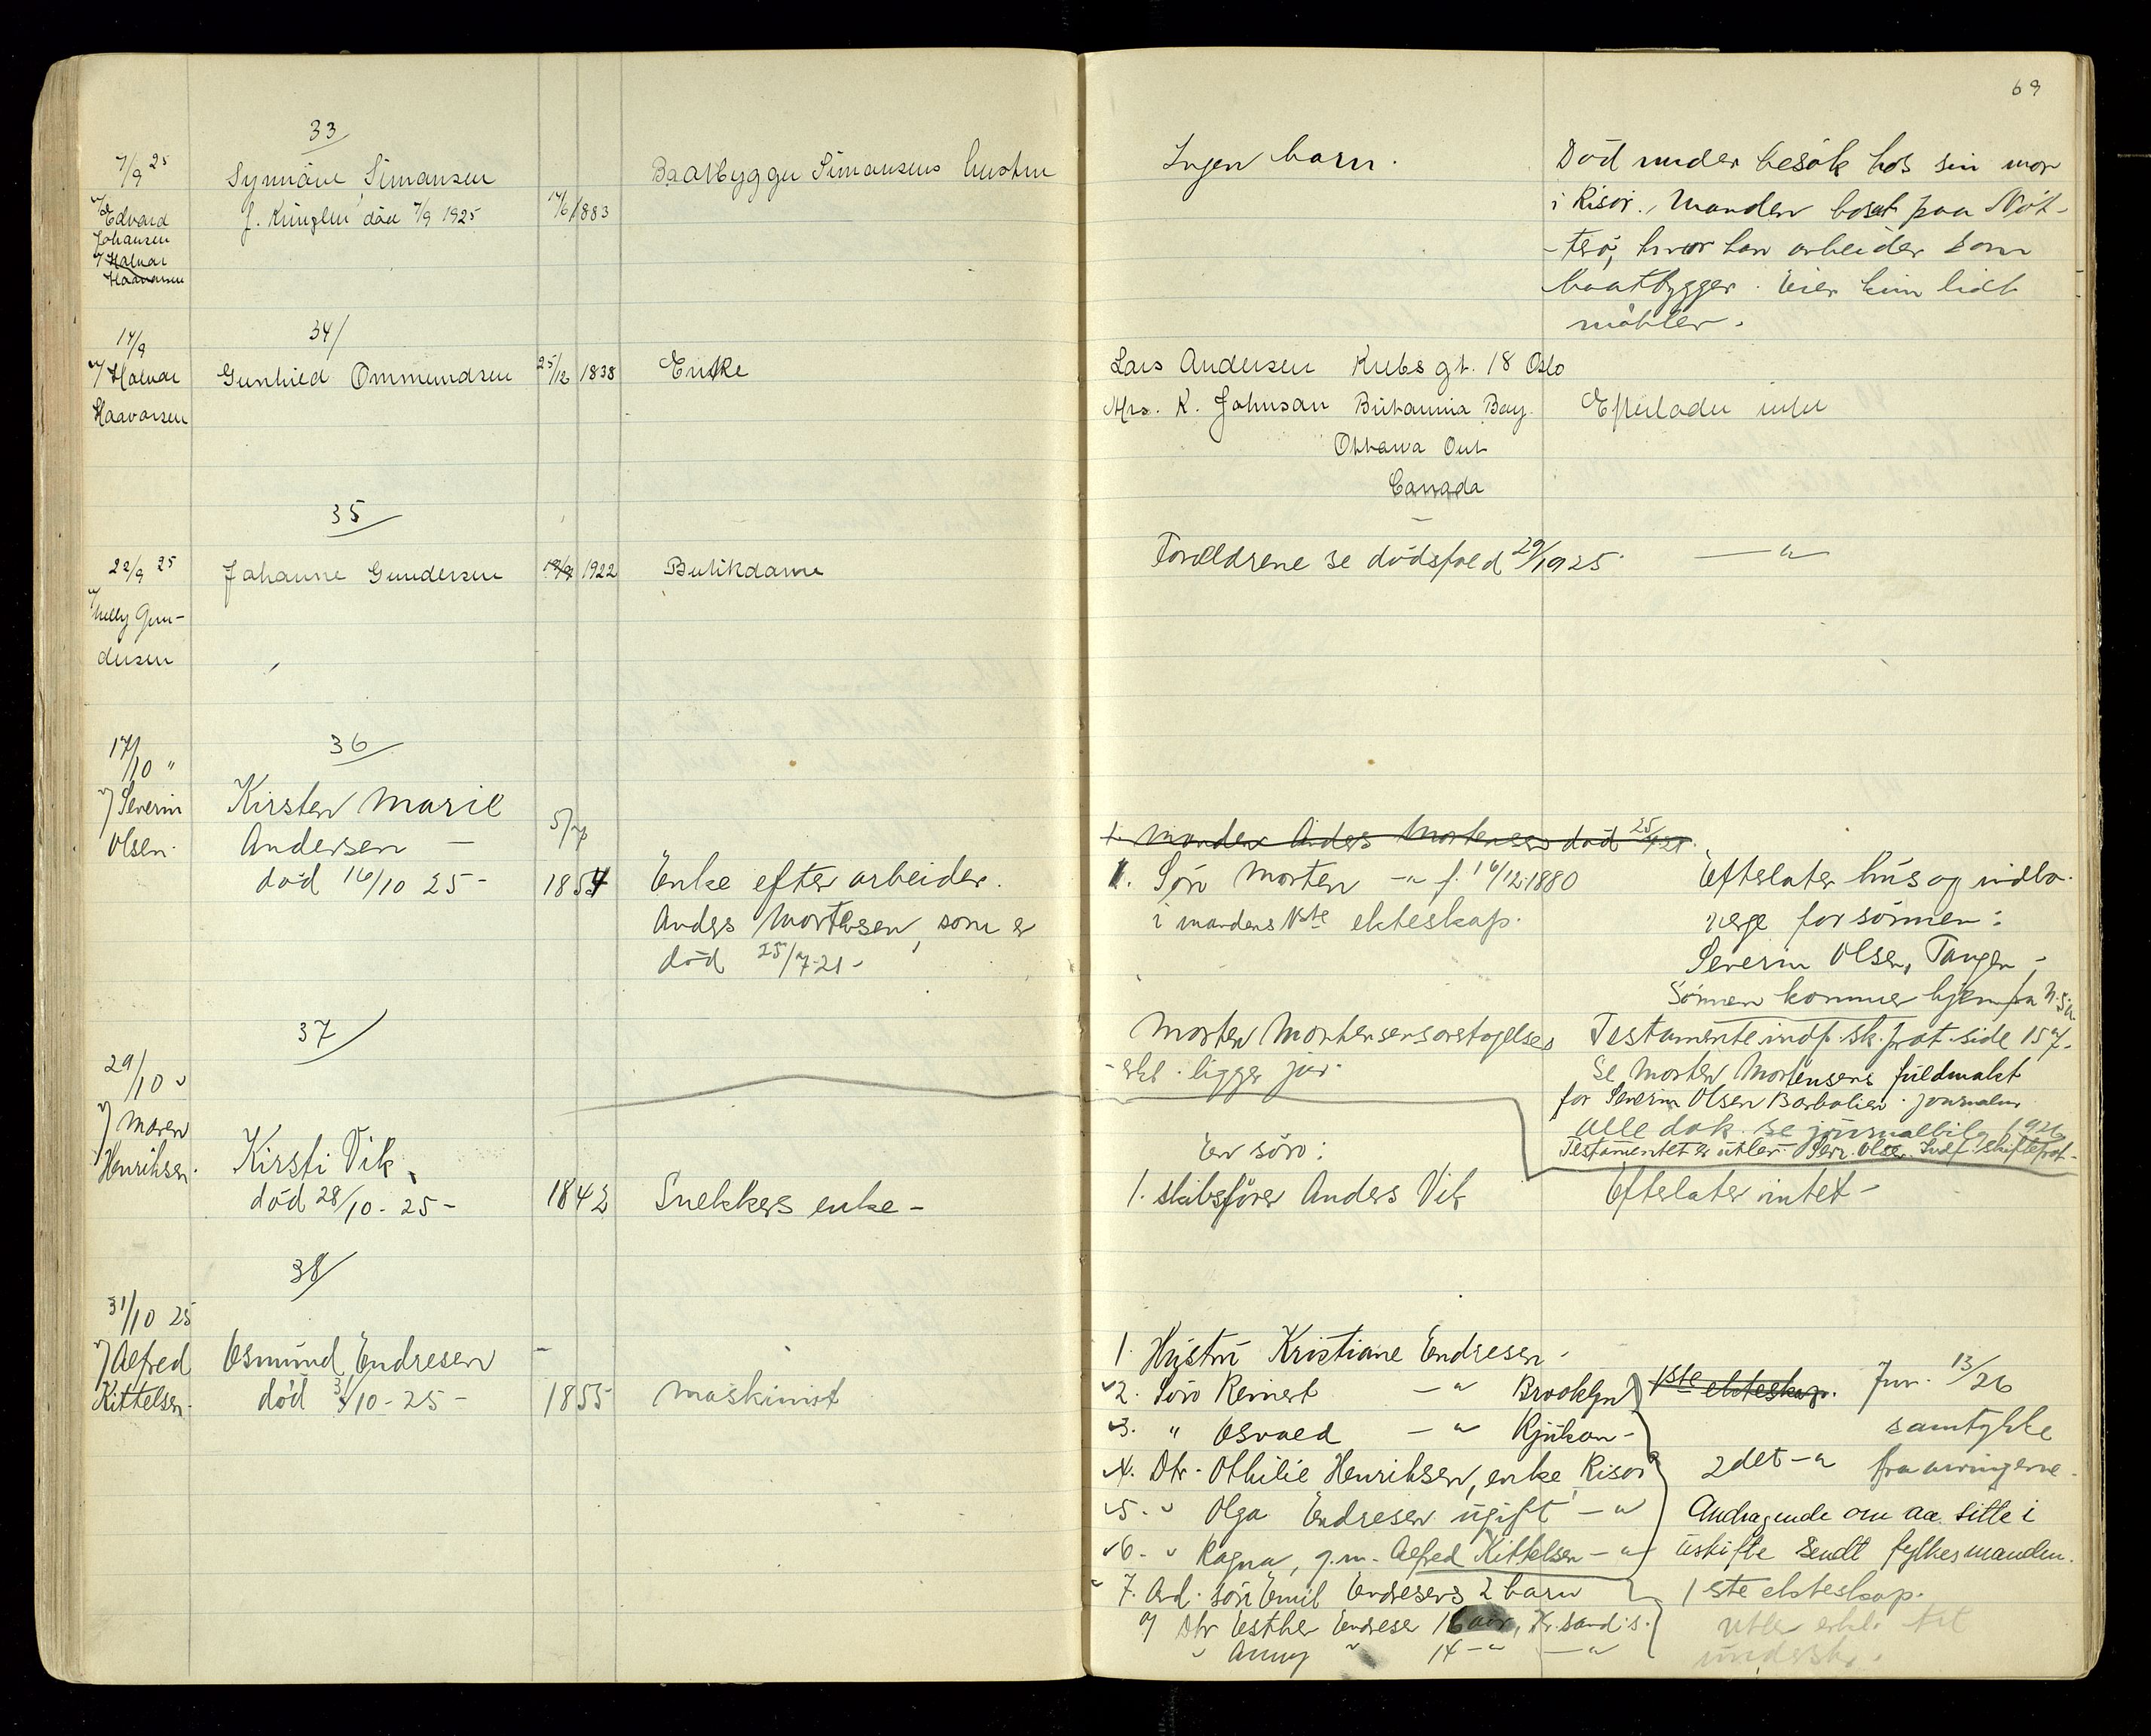 69
33
7/9 25
Synnöve Simonsen
Baatbygger Simonsens hustru
Ingen barn.
Död under besök hos sin mor
v/ Edvard
Johansen
f. Knizlen död 7/9 1925
14/6 1883
i Risör. Manden bosat paa Nöt-
v/ Halvar
Haavorsen
-terö, hvor han arbeider som
baatbygger. Eier kun lidt
möbler.
34
14/9
v/ Halvar
Gunhild Ommundsen
25/12 1838
Enke
Lars Andersen Kubs gt. 18 Oslo
Haavorsen
Mrs. K. Johnson Britannia Bay
Efterlader intet
Ottawa Ont
Canada
35
22/9 25
Johanne Gundersen
1922
Butikdame
Forældrene se dödsfald 29/1925.
— " —
v/ Nelly Gun-
dersen
36
17/10 "
v/ Severin
Kirsten Marie
Olsen.
Andersen —
5/7
1. Manden Anders Mortensen död 25/7 21.
död 16/10 25 -
1854
Enke efter arbeider
1. Sön Morten — " f. 16/12 1880
Efterlater hus og indbo.
Anders Mortensen, som er
i mandens 1ste ekteskap.
verge for sönnen:
död 25/7-21-
Severin Olsen, Tangen -
Sönnen kommer hjem fra U.S.A.
37
Morten Mortensens
Testamente indf. sk. prot. side 157.
29/10 "
-erkl. ligger
Se Morten Mortensens fuldmakt
for Severin Olsen Barbolien. journalnr
v/ Maren
Alle dok. se journalbil. 1926
Henriksen.
Kirsti Vik
En sön:
Testamentet er utlev. Sev. Olsen. Indf. skifteprot.
död 28/10-25-
1842
Snekkers enke -
1. skibsförer Anders Vik
Efterlater intet -
38
31/10 25
v/ Alfred
Osmund Endresen
-
1. Hustru Kristiane Endresen -
Kittelsen.
död 31/10-25-
1855
Maskinist
2. Sön Reinert — " Brooklyn
1ste ekteskap.
Jnr. 13/26
3. " Osvald — " Rjukan -
samtykke
4. Dtr. Othilie Henriksen, enke, Risör
2det — "
fra arvingerne.
5. " Olga Endresen ugift — "
Andragende om aa sitte i
6. " Ragna, g.m. Alfred Kittelsen — "
uskifte sendt fylkesmanden.
7. Avd. sön Emil Endresens 2 barn
1ste ekteskap.
Dtr Esther Endresen 16 aar, Kr.sand s.
utlev. erkl. til
" Anny " 14 — " — "
underskr.